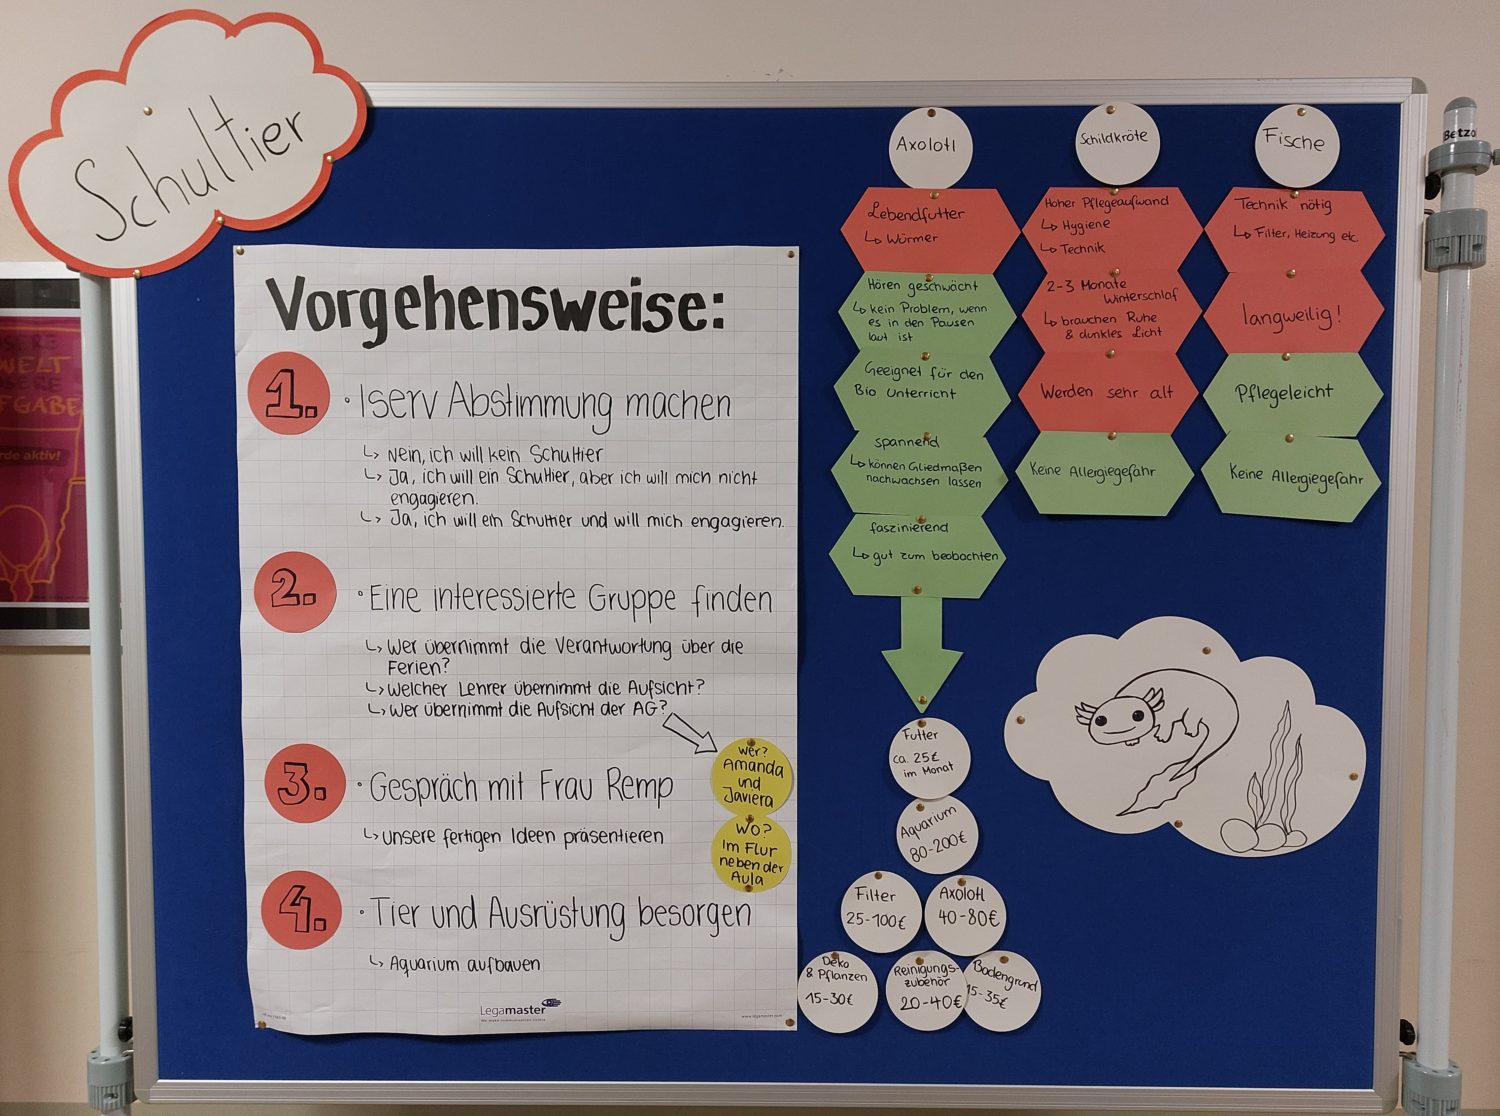 Schultier
Vorgehensweise:
1. • Iserv Abstimmung machen
↳ Nein, ich will kein Schultier
↳ Ja, ich will ein Schultier, aber ich will mich nicht
engagieren.
↳ Ja, ich will ein Schultier und will mich engagieren.
2. • Eine interessierte Gruppe finden
↳ Wer übernimmt die Verantwortung über die
Ferien?
↳ Welcher Lehrer übernimmt die Aufsicht?
↳ Wer übernimmt die Aufsicht der AG?
Wer?
Amanda
und
Javiera
3. • Gespräch mit Frau Remp
↳ unsere fertigen Ideen präsentieren
Wo?
Im Flur
neben der
Aula
4. • Tier und Ausrüstung besorgen
↳ Aquarium aufbauen
Legamaster
Axolotl
Lebendfutter
↳ Würmer
Hören geschwächt
↳ kein Problem, wenn
es in den Pausen
laut ist
Geeignet für den
Bio Unterricht
spannend
↳ können Gliedmaßen
nachwachsen lassen
faszinierend
↳ gut zum beobachten
Futter
ca. 25€
im Monat
Aquarium
80-200€
Filter
25-100€
Axolotl
40-80€
Deko
& Pflanzen
15-30€
Reinigungs-
zubehör
20-40€
Bodengrund
15-35€
Schildkröte
Hoher Pflegeaufwand
↳ Hygiene
↳ Technik
2-3 Monate
Winterschlaf
↳ brauchen Ruhe
& dunkles Licht
Werden sehr alt
Keine Allergiegefahr
Fische
Technik nötig
↳ Filter, Heizung etc.
langweilig!
Pflegeleicht
Keine Allergiegefahr
Betzo
WELT
FGABE
rde aktiv!